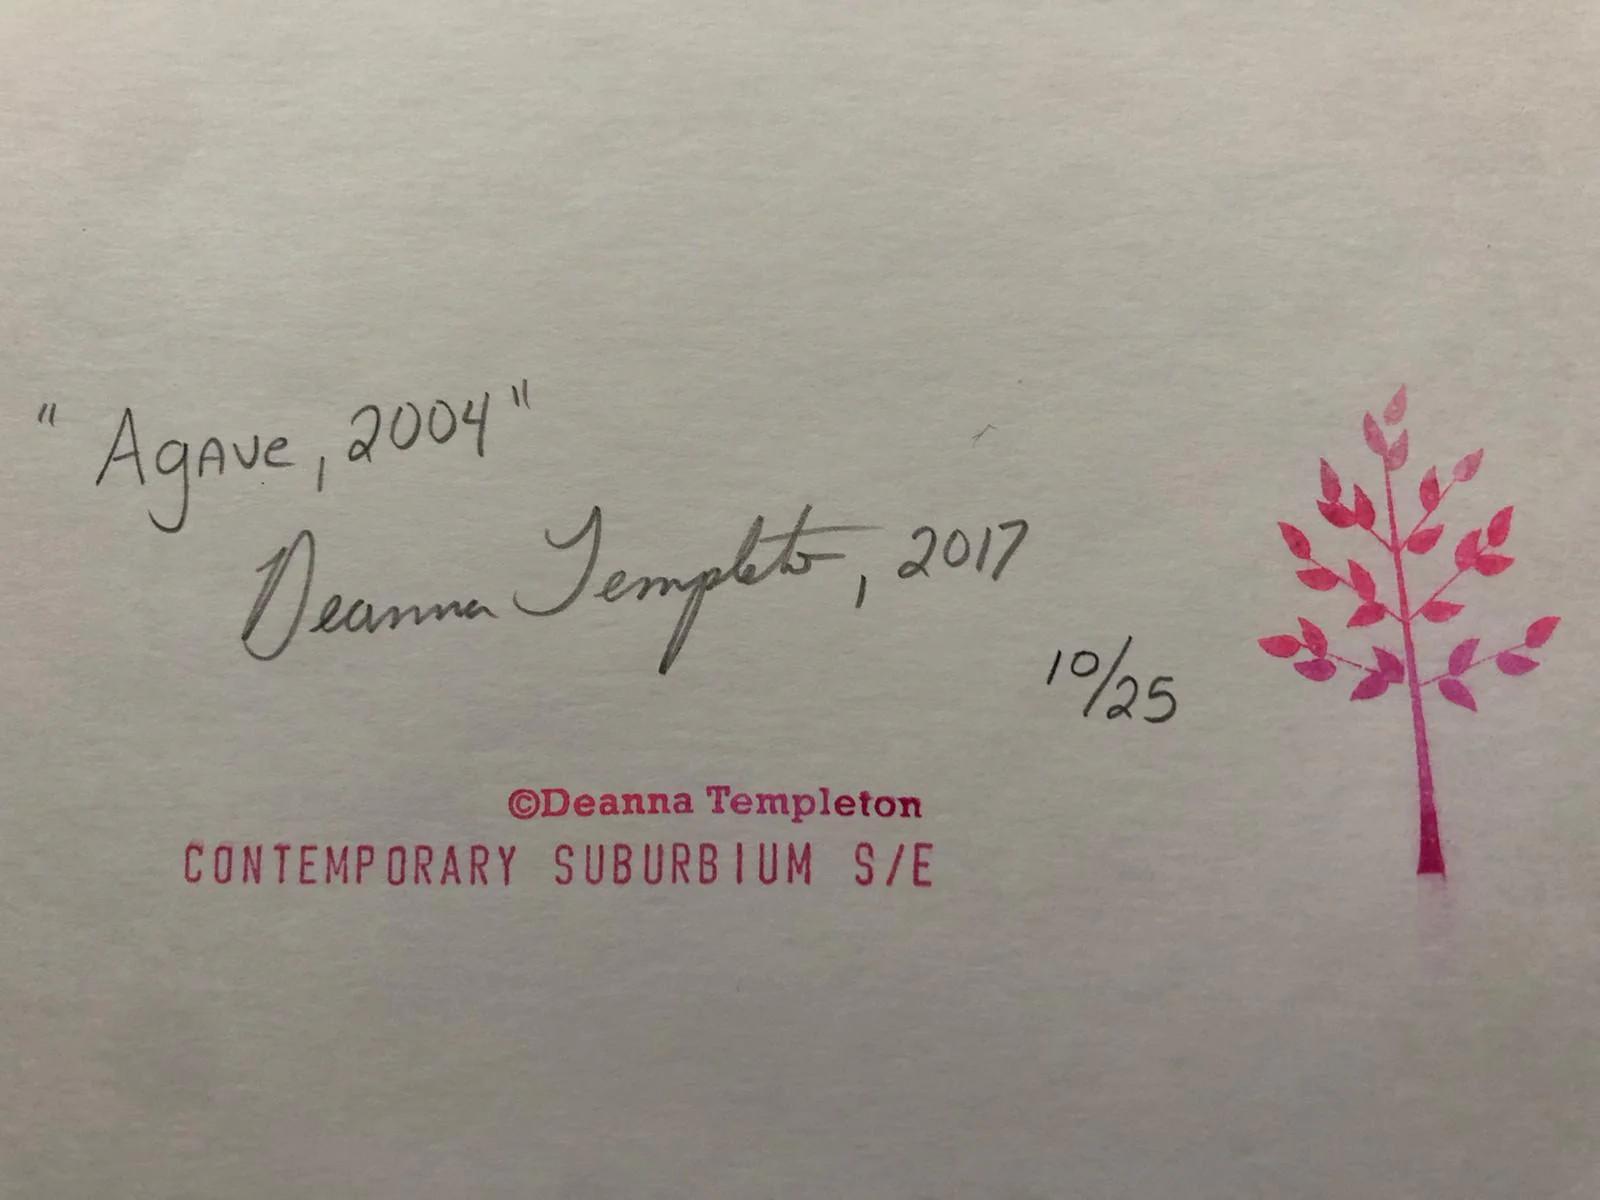 "Agave, 2004"
Deanna Templeton, 2017
10/25
©Deanna Templeton
CONTEMPORARY SUBURBIUM S/E